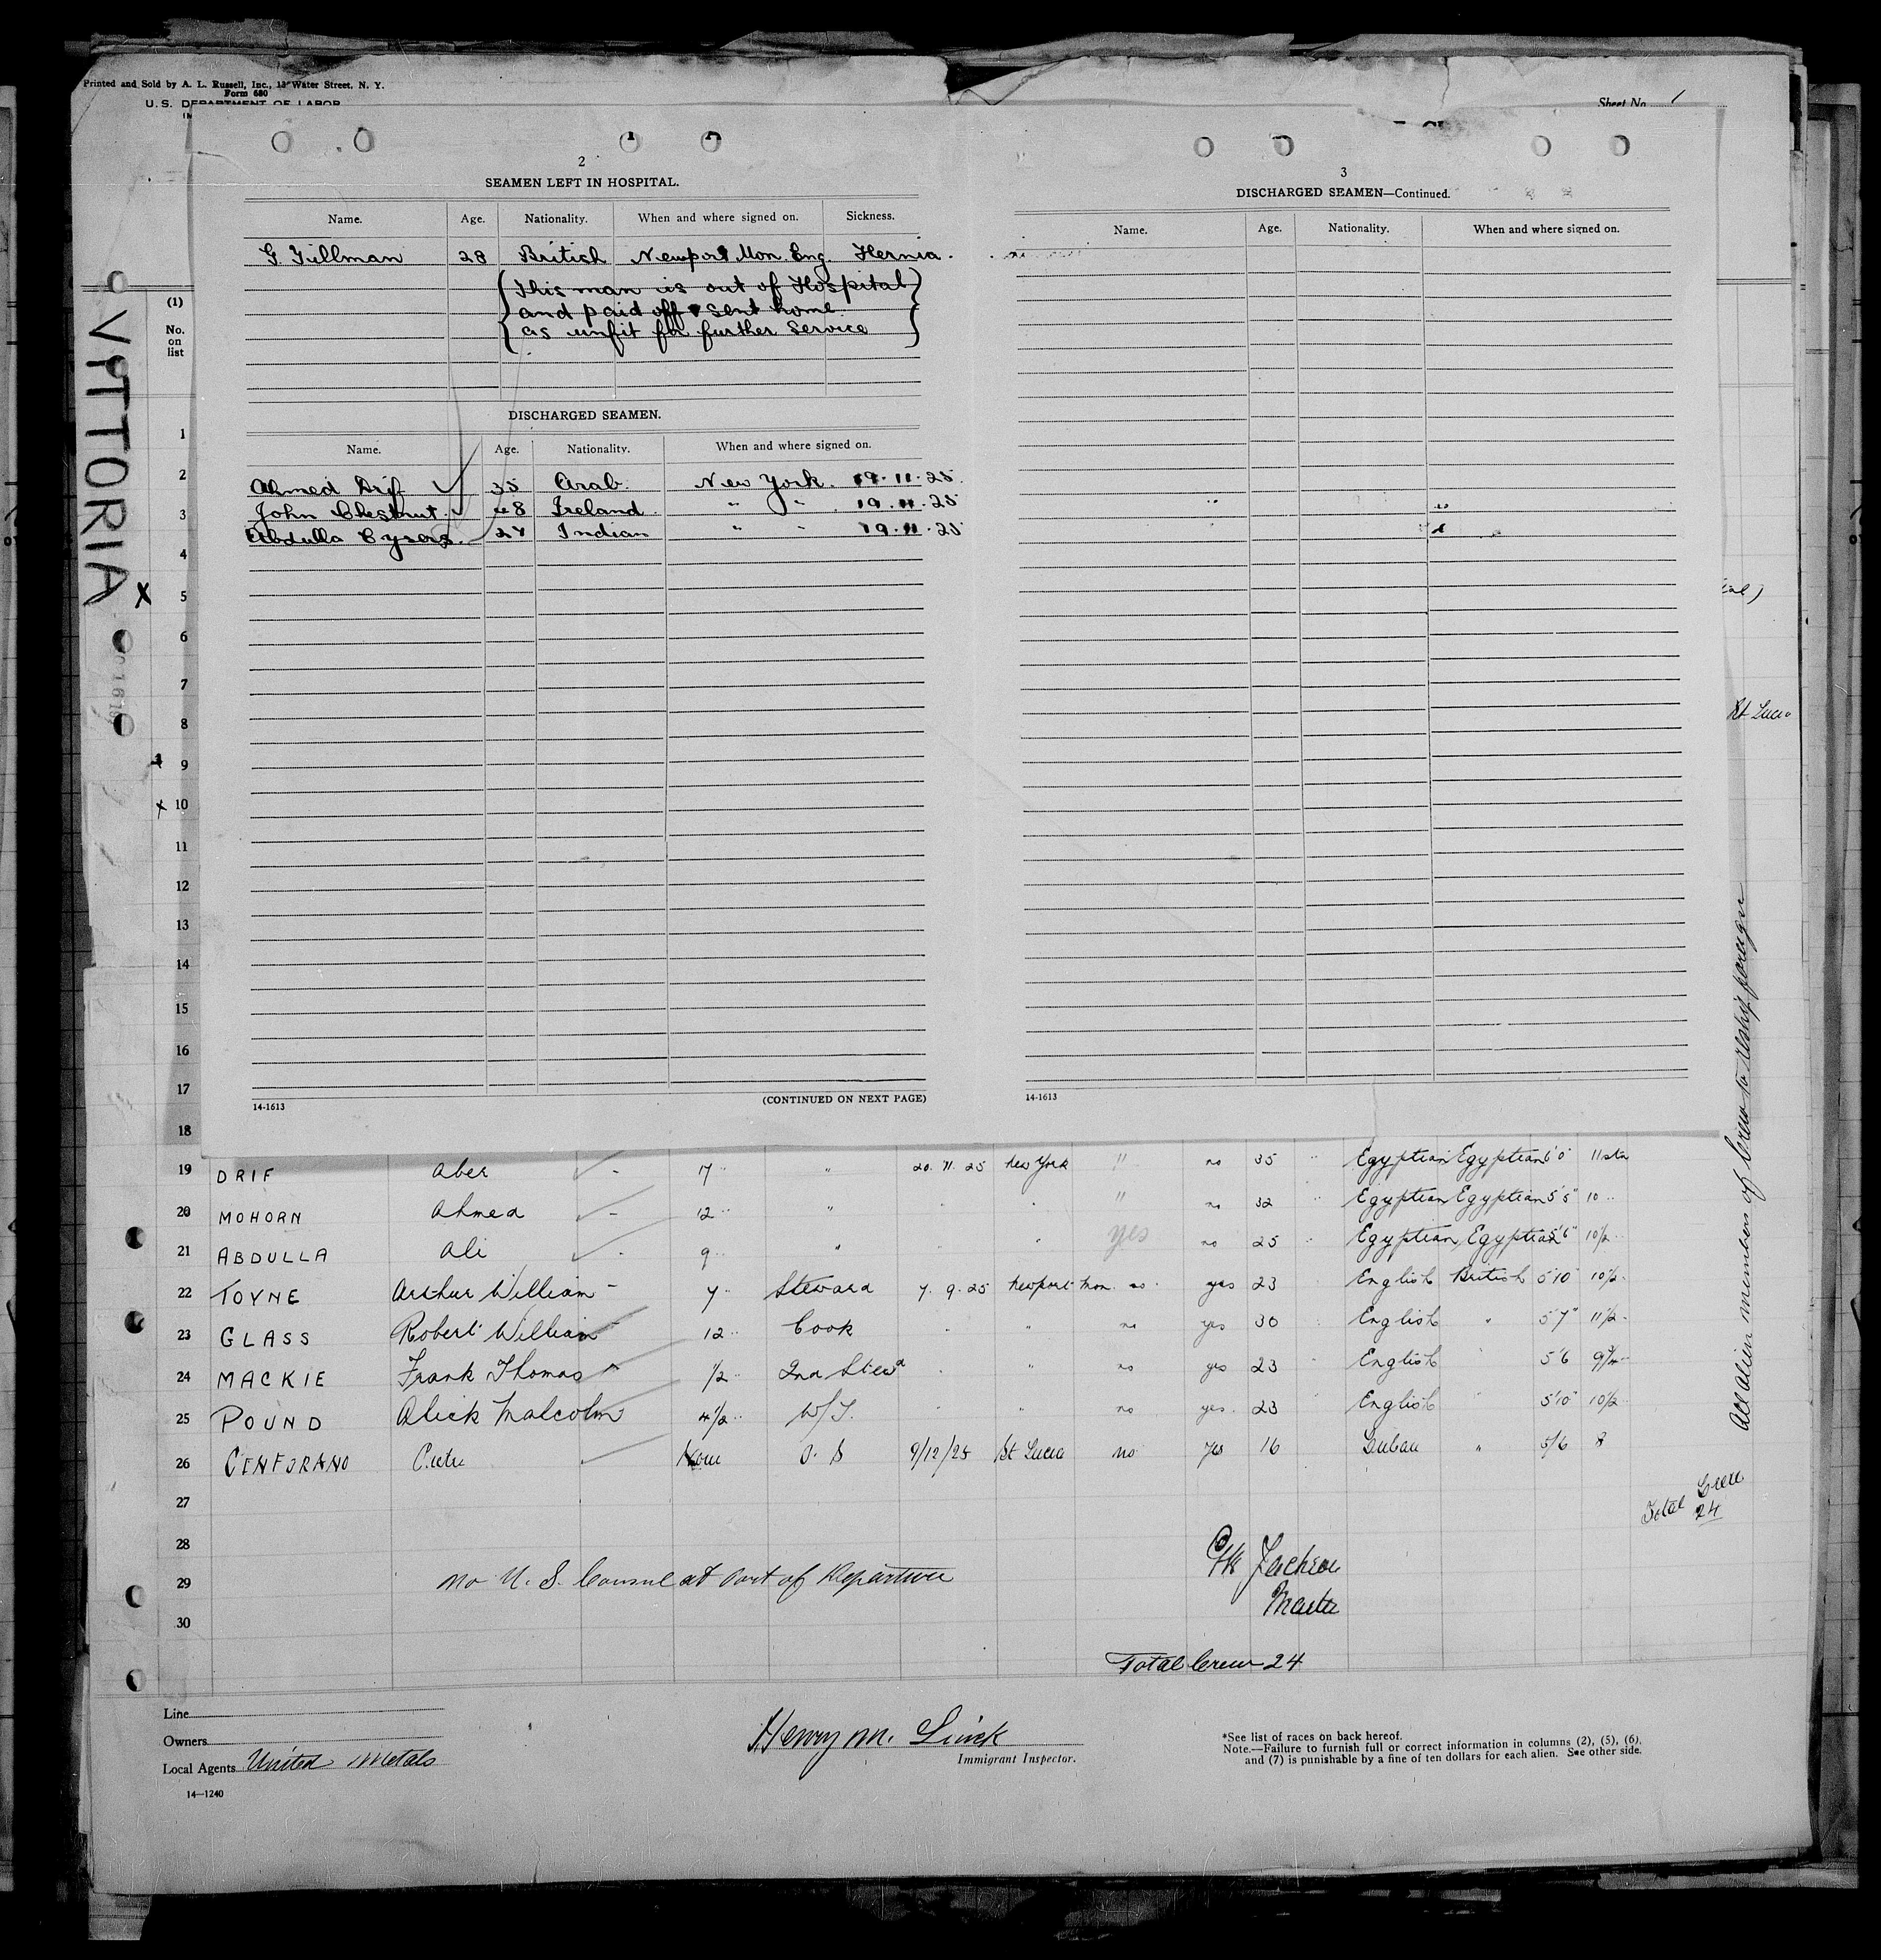 Printed and Sold by A. L. Russell, Inc., Water Street, N. Y.
Form 680
U.S. DEPARTMENT OF LABOR
Sheet No. 1
VITTORIA
2
SEAMEN LEFT IN HOSPITAL.
Name. Age. Nationality. When and where signed on. Sickness.
G. Gillman 28 British Newport Mon Eng. Hernia.
(This man is out of Hospital)
and paid off & sent home
(as unfit for further service)
DISCHARGED SEAMEN.
Name. Age. Nationality. When and where signed on.
Ahmed Drif 35 Arab. New York. 19.11.25.
John Chestnut. 48 Ireland. " " 19.11.25
Abdulla 27 Indian " " 19.11.25
(CONTINUED ON NEXT PAGE)
14-1613
3
DISCHARGED SEAMEN—Continued.
Name. Age. Nationality. When and where signed on.
14-1613
(1)
No.
on
list
1
2
3
4
X 5
6
7
8
9
x 10
11
12
13
14
15
16
17
18
St Lucia
All alien members of crew to reship foreign
19 DRIF Aber - 17 " " 20.11.25 New York " no 35 " Egyptian Egyptian 6'0" 11 stn
20 MOHORN Ahmed - 12 " " no 32 " Egyptian Egyptian 5'5" 10 "
21 ABDULLA Ali - 9 " " yes no 25 " Egyptian Egyptian 5'6" 10½
22 TOYNE Arthur William - 7 " Steward 7.9.25 Newport Mon. no yes 23 " English British 5'10" 10½
23 GLASS Robert William - 12 " Cook " " no yes 30 English " 5'7" 11½
24 MACKIE Frank Thomas - 1/2 " 2nd Stewd " " no yes 23 English " 5'6
25 POUND Alick Malcolm 4½ " W/T. " " no yes. 23 English " 5'10" 10½
26 CENFORANO None O.S 9/12/25 St Lucia no yes 16 Cuban " 5/6 8
27
28
29
30
Total Crew
24
No U.S. Consul at Port of Departure
Master
Total Crew 24
Line
Owners
Local Agents United Metals
14—1240
Henry M.
Immigrant Inspector.
*See list of races on back hereof.
Note.—Failure to furnish full or correct information in columns (2), (5), (6),
and (7) is punishable by a fine of ten dollars for each alien. See other side.